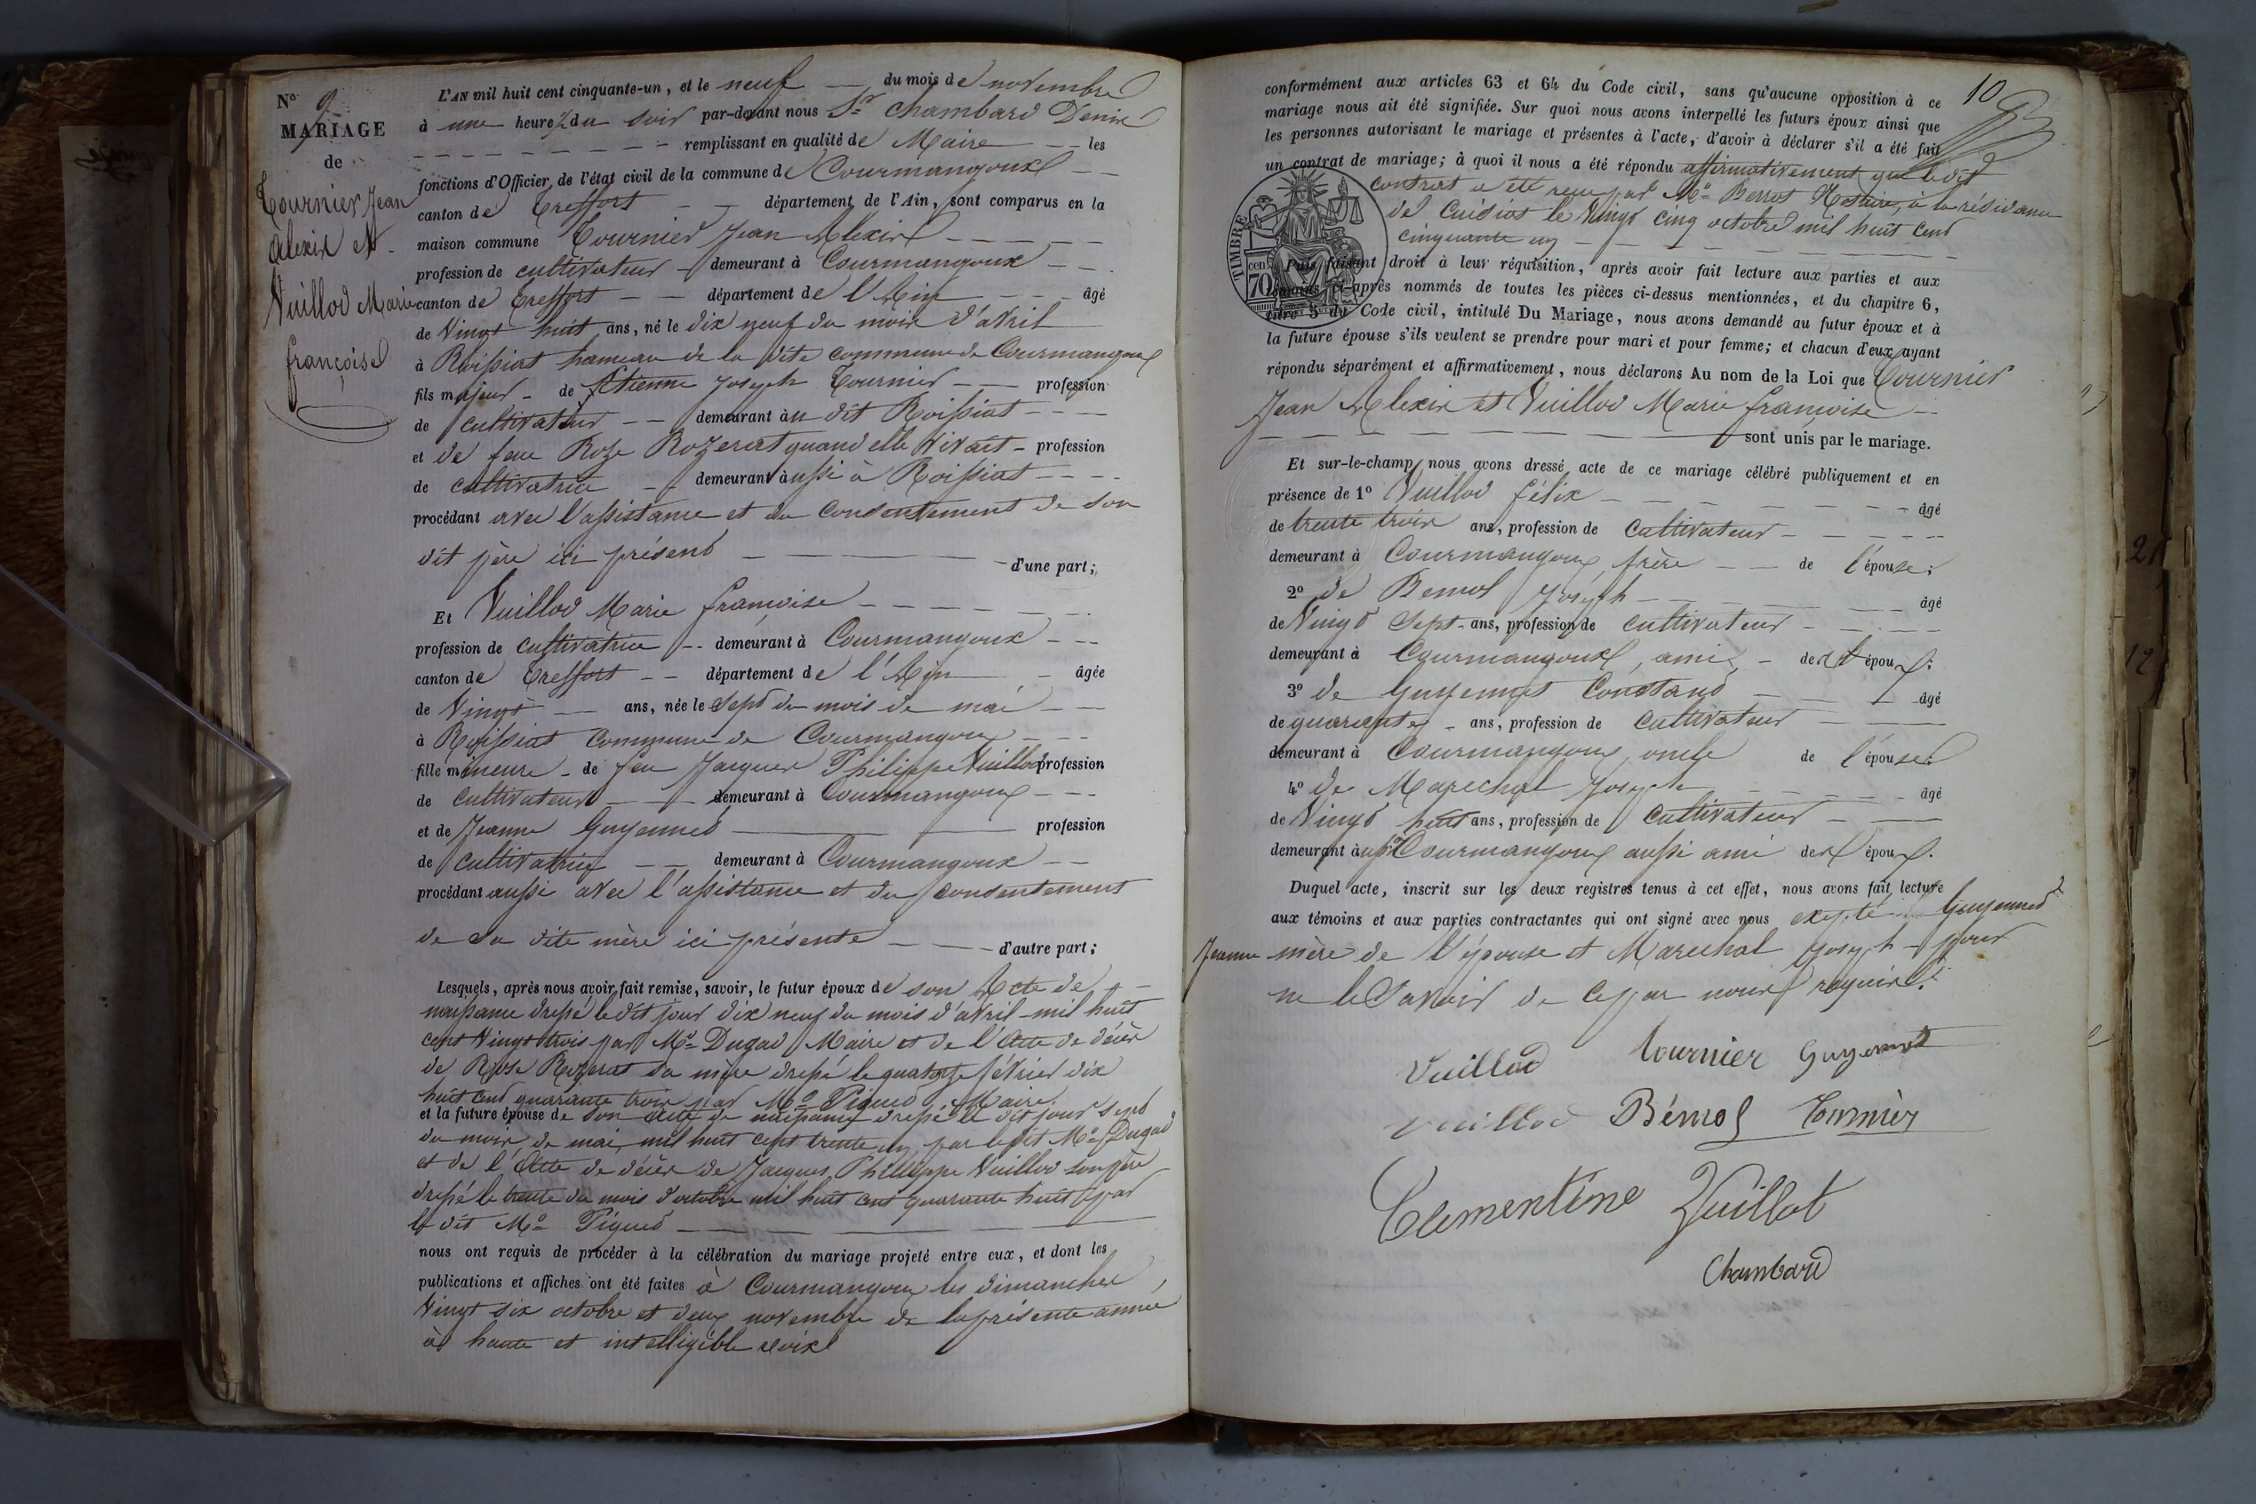 N° 9
MARIAGE
de
Tournier Jean
Alexix et
Vuillod Marie
françoise
L'AN mil huit cent cinquante-un, et le neuf du mois de novembre
à une heure du soir par-devant nous Sr Chambard Denis
remplissant en qualité de Maire les
fonctions d'Officier de l'état civil de la commune de Courmangoux
canton de Treffort département de l'Ain, sont comparus en la
maison commune Tournier Jean Alexix
profession de cultivateur demeurant à Courmangoux
canton de Treffort département de l'Ain âgé
de Vingt huit ans, né le dix neuf du mois d'avril
à Roissiat hameau de la dite commune de Courmangoux
fils majeur de Etienne Joseph Tournier profession
de cultivateur demeurant au dit Roissiat
et de feue Rose Rozerat quand elle vivait profession
de cultivatrice demeurant aussi à Roissiat
procédant avec l'assistance et du consentement de son
dit père ici présent d'une part;
Et Vuillod Marie françoise
profession de cultivatrice demeurant à Courmangoux
canton de Treffort département de l'Ain âgée
de Vingt ans, née le Sept du mois de mai
à Roissiat commune de Courmangoux
fille mineure de feu Jacques Philippe Vuillod profession
de cultivateur demeurant à Courmangoux
et de Jeanne Guyennet profession
de cultivatrice demeurant à Courmangoux
procédant aussi avec l'assistance et du consentement
de sa dite mère ici présente d'autre part;
Lesquels, après nous avoir fait remise, savoir, le futur époux de son Acte de
naissance dressé le dit jour dix neuf du mois d'avril mil huit
cent Vingt trois par Mr Dugad Maire et de l'acte de décès
de Rose Rozerat sa mère dressé le quatorze février dix
huit cent quarante trois par Mr Piquet Maire
et la future épouse de son acte de naissance dressé le dit jour sept
du mois de mai mil huit cent trente un par le dit Mr Dugad
et de l'acte de décès de Jacques Philippe Vuillod son père
dressé le trente du mois d'octobre mil huit cent quarante huit par
le dit Mr Piquet
nous ont requis de procéder à la célébration du mariage projeté entre eux, et dont les
publications et affiches ont été faites à Courmangoux les dimanches
Vingt six octobre et deux novembre de la présente année
à haute et intelligible voix
10
conformément aux articles 63 et 64 du Code civil, sans qu'aucune opposition à ce
mariage nous ait été signifiée. Sur quoi nous avons interpellé les futurs époux ainsi que
les personnes autorisant le mariage et présentes à l'acte, d'avoir à déclarer s'il a été fait
un contrat de mariage; à quoi il nous a été répondu affirmativement que le dit
contrat a été reçu par Me Berrot Notaire, à la résidence
de Cuisiat le Vingt cinq octobre mil huit cent
cinquante un
TIMBRE
70 cen.
Puis faisant droit à leur réquisition, après avoir fait lecture aux parties et aux
témoins ci-après nommés de toutes les pièces ci-dessus mentionnées, et du chapitre 6,
titre 5 du Code civil, intitulé Du Mariage, nous avons demandé au futur époux et à
la future épouse s'ils veulent se prendre pour mari et pour femme; et chacun d'eux ayant
répondu séparément et affirmativement, nous déclarons Au nom de la Loi que Tournier
Jean Alexix et Vuillod Marie françoise
sont unis par le mariage.
Et sur-le-champ nous avons dressé acte de ce mariage célébré publiquement et en
présence de 1° Vuillod félix âgé
de trente trois ans, profession de cultivateur
demeurant à Courmangoux, frère de l'épouse;
2° de Bernol Joseph âgé
de Vingt Sept ans, profession de cultivateur
demeurant à Courmangoux, ami des époux;
3° de Guyennet Constant âgé
de quarante ans, profession de cultivateur
demeurant à Courmangoux, oncle de l'épouse
4° de Marechal Joseph âgé
de Vingt huit ans, profession de cultivateur
demeurant aussi à Courmangoux aussi ami des époux.
Duquel acte, inscrit sur les deux registres tenus à cet effet, nous avons fait lecture
aux témoins et aux parties contractantes qui ont signé avec nous excepté Guyennet
Jeanne mère de l'épouse et Marechal Joseph pour
ne le Savoir de ce par nous requis.
Vuillod Tournier Guyennet
Vuillod Bérnol Tournier
Clementine Vuillot
Chambard